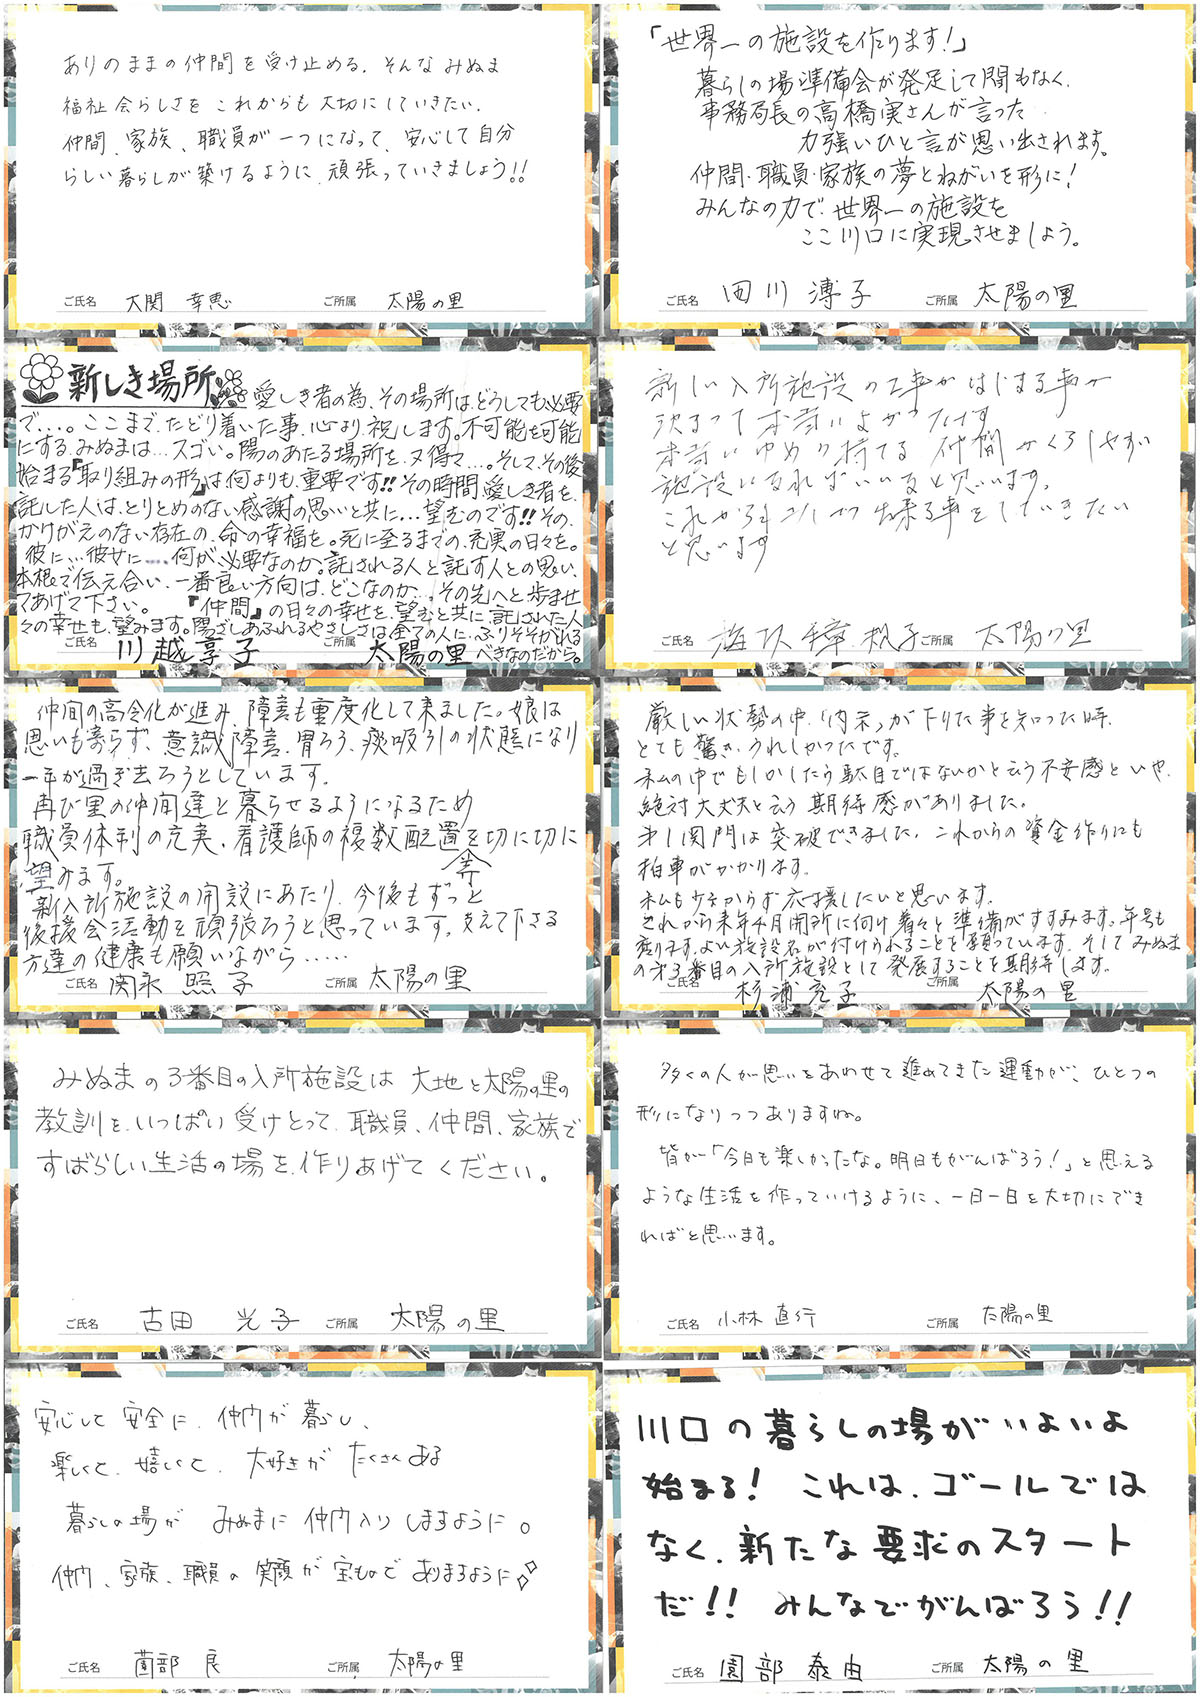 ありのままの仲間を受け止める、そんなみぬま
福祉会らしさをこれからも大切にしていきたい。
仲間、家族、職員が一つになって、安心して自分
らしい暮らしが築けるように、頑張っていきましょう!!
ご氏名 大関 幸恵 ご所属 太陽の里
「世界一の施設を作ります!」
暮らしの場準備会が発足して間もなく、
事務局長の高橋実さんが言った
力強いひと言が思い出されます。
仲間・職員・家族の夢とねがいを形に!
みんなの力で、世界一の施設を
ここ川口に実現させましょう。
ご氏名 四川 溥子 ご所属 太陽の里
新しき場所
愛しき者の為、その場所は、どうしても必要
で…。ここまで、たどり着いた事、心より、祝します。不可能を可能
にする、みぬまは…スゴい。陽のあたる場所を、又得て…。そして、その後
始まる『取り組みの形』は何よりも、重要です!!その時間、愛しき者を、
託した人は、とりとめのない感謝の思いと共に…望むのです!!その、
かけがえのない存在の、命への幸福を。死に至るまでの、充実の日々を。
彼に…彼女に……何が、必要なのか。託される人と託す人との思い、
本根で伝え合い、一番良い方向は、どこなのか…、その先へと歩ませ
てあげて下さい。 『仲間』の日々の幸せを、望むと共に、託された人
々の幸せも、望みます。陽ざしあふれるやさしさは全ての人に、ふりそそがれる
べきなのだから。
ご氏名 川越 享子 ご所属 太陽の里
新しい入所施設の工事がはじまる事が
決まって本当によかったです。
本当にゆめの持てる 仲間がくらしやすい
施設になればいいなと思います。
これからも少しづつ出来る事をしていきたい
と思います
ご氏名 ご所属 太陽の里
仲間の高令化が進み、障害も重度化して来ました。娘は
思いも寄らず、意識障害、胃ろう、痰吸引の状態になり
一年が過ぎ去ろうとしています。
再び里の仲間達と暮らせるようになるため
職員体制の充実、看護師の複数配置を切に切に
望みます。
新入所施設の開設にあたり、今後もずっと
後援会活動を頑張ろうと思っています。支えて下さる
方達の健康も願いながら.....
ご氏名 関永 照子 ご所属 太陽の里
厳しい状勢の中、「内示」が下りた事を知った時、
とても驚き、うれしかったです。
私の中でもしかしたら駄目ではないかと云う不安感といや、
絶対大丈夫と云う期待感がありました。
才1関門は突破できました。これからの資金作りにも
拍車がかかります。
私も少なからず応援したいと思います。
これから来年4月開所に向け着々と準備がすすみます。年号も
変ります。よい施設名が付けられることを願っています。そしてみぬま
の才3番目の入所施設として発展することを期待します。
ご氏名 杉浦 亮子 ご所属 太陽の里
みぬまの3番目の入所施設は大地と太陽の里の
教訓を、いっぱい受けとって、職員、仲間、家族で
すばらしい生活の場を、作りあげてください。
ご氏名 古田 光子 ご所属 太陽の里
多くの人が思いをあわせて進めてきた運動が、ひとつの
形になりつつありますね。
皆が「今日も楽しかったな。明日もがんばろう!」と思える
ような生活を作っていけるように、一日一日を大切にでき
ればと思います。
ご氏名 小林 直行 ご所属 太陽の里
安心して安全に、仲間が暮らし、
楽しくて、嬉しくて、大好きがたくさんある
暮らしの場が みぬまに仲間入りしますように。
仲間、家族、職員の笑顔が宝もので ありますように
ご氏名 薗部 良 ご所属 太陽の里
川口の暮らしの場がいよいよ
始まる!これは、ゴールでは
なく、新たな要求のスタート
だ!! みんなでがんばろう!!
ご氏名 園部 泰由 ご所属 太陽の里